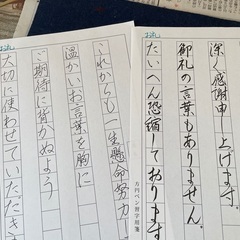 深く感謝申し上げます。
御礼の言葉もありません。
たいへん恐縮しております
方円ペン習字用箋
これからも一生懸命努力
温かいお言葉を胸に
ご期待に背かぬよう
大切に使わせていただきま